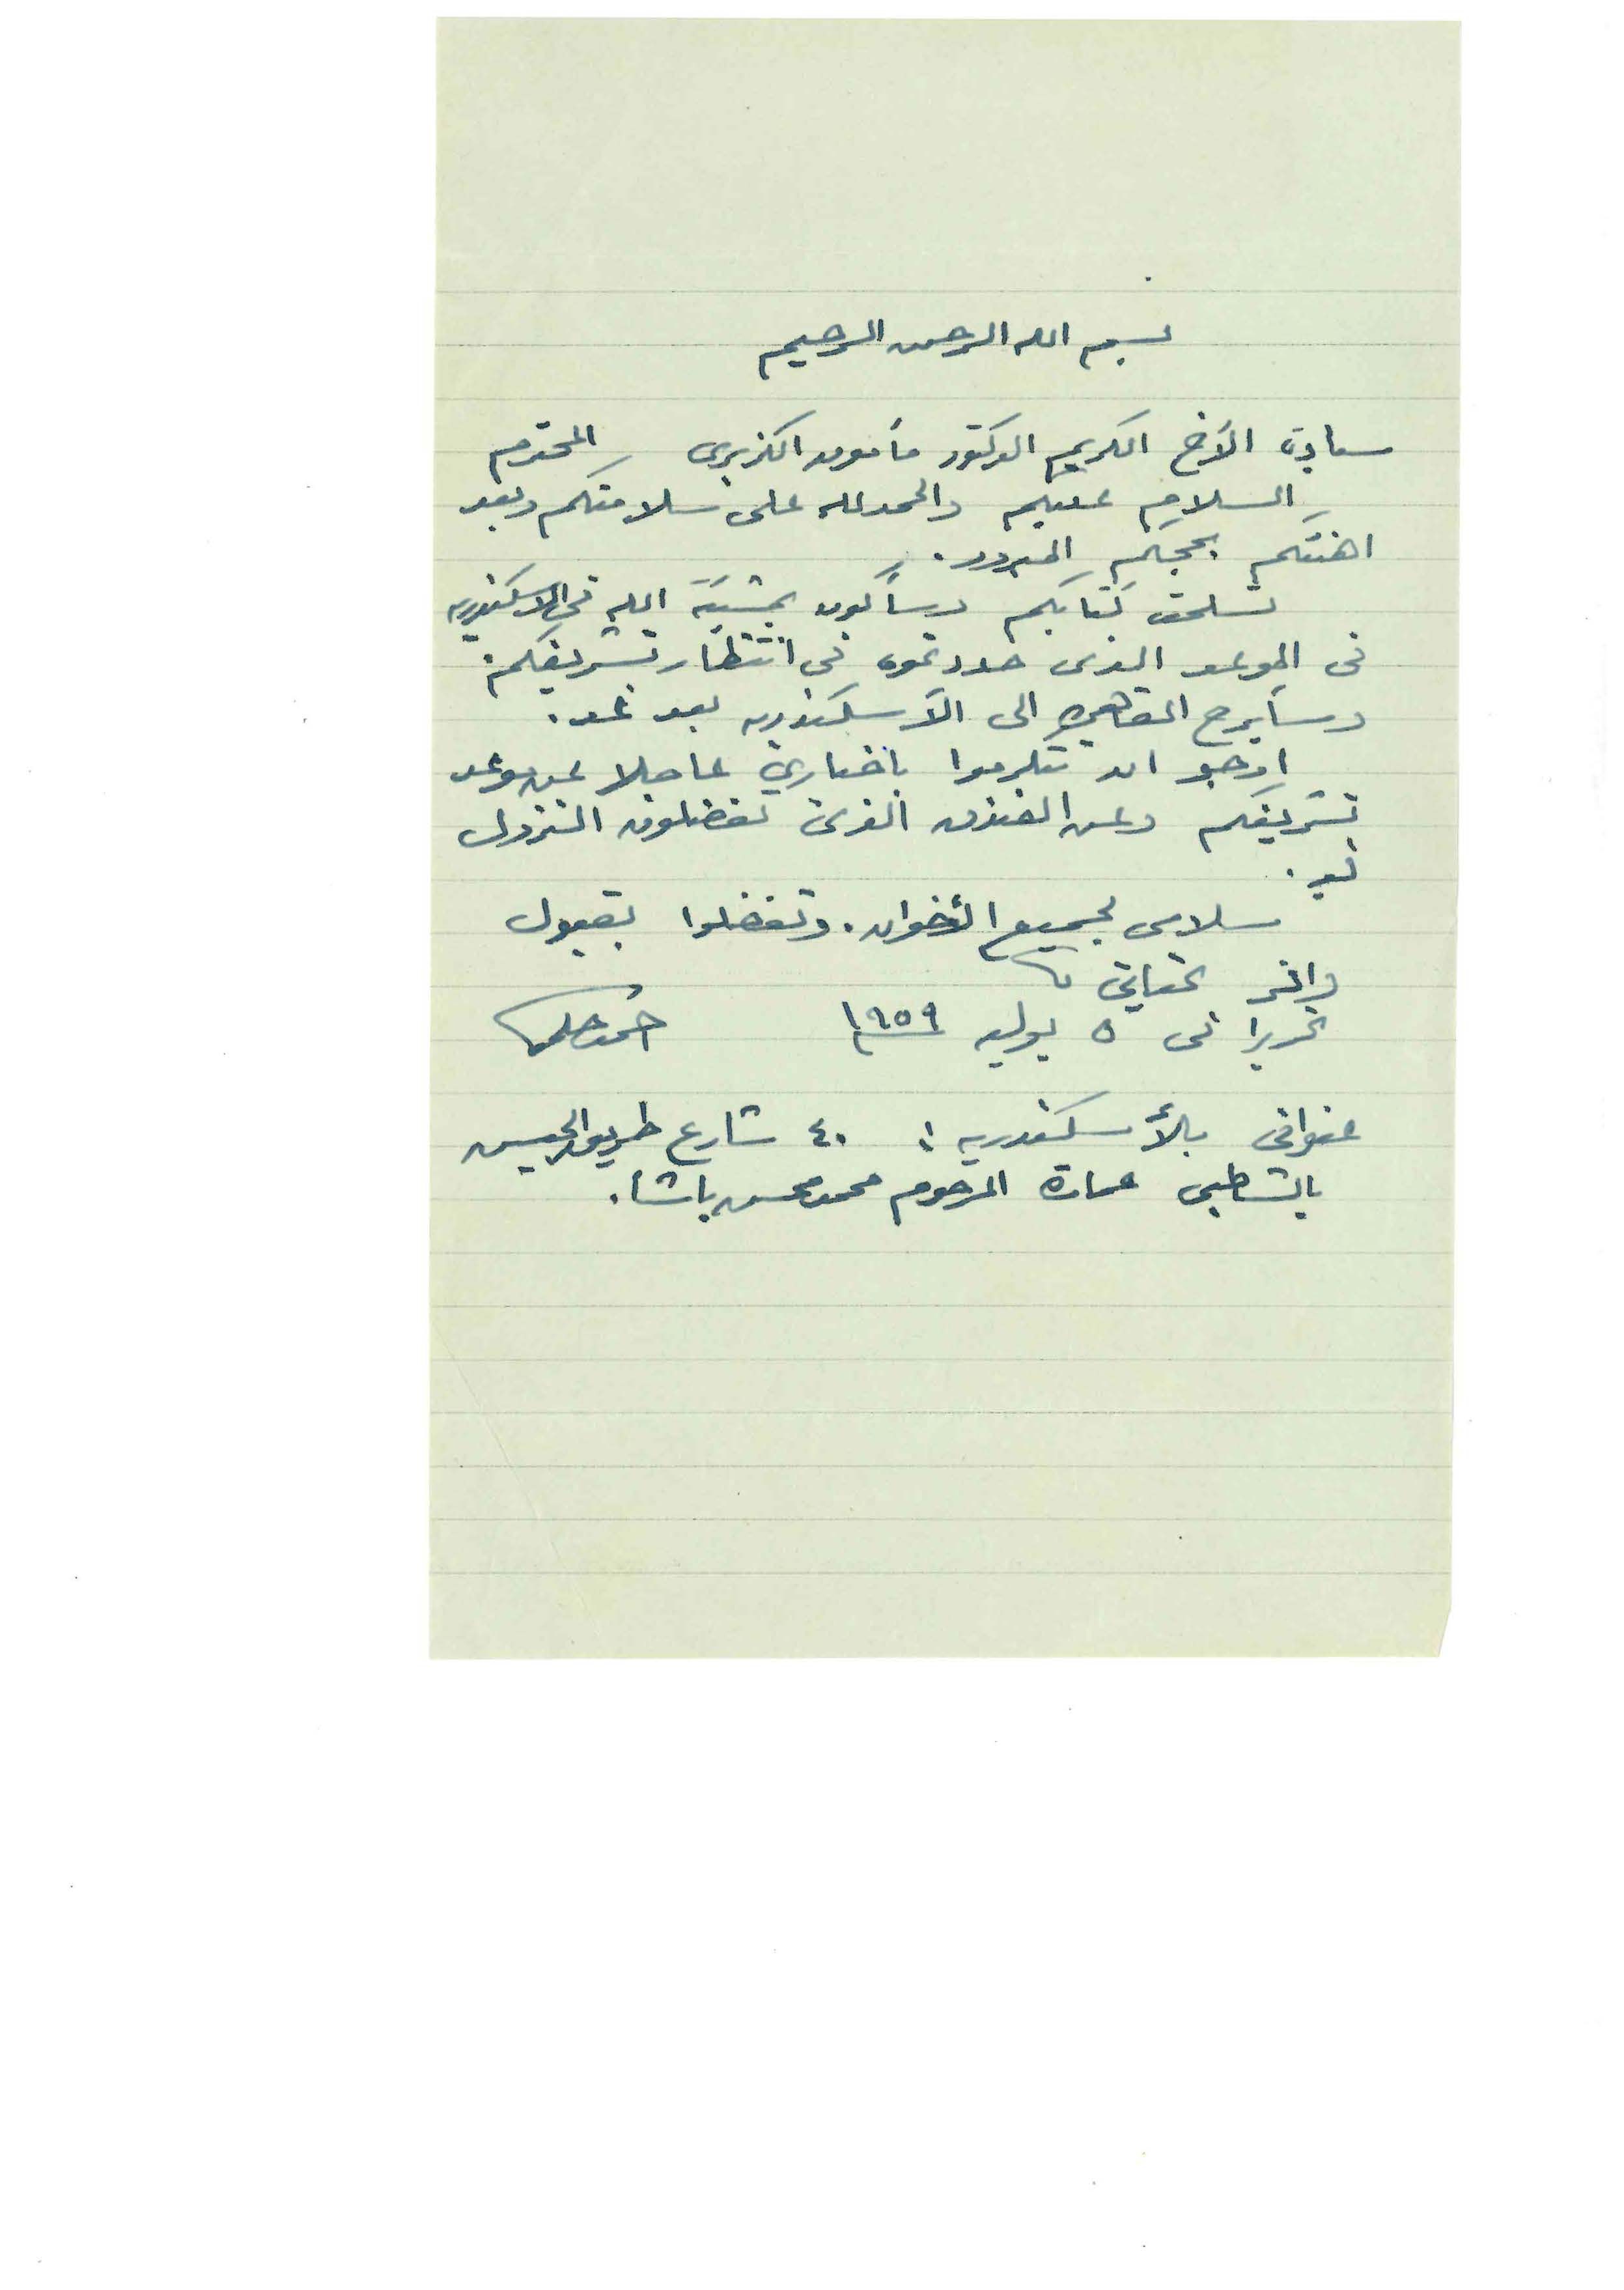 بسم الله الرحمن الرحيم
سيادة الأخ الكريم الدكتور مأمون الكزبرى المحترم
السلام عليكم والحمد لله على سلامتكم وبعد
اهنئكم بحجكم المبرور.
تسلمت كتابكم وسأكون بمشيئة الله فى الاسكندريه
فى الموعد الذى حددتموه فى انتظار تشريفكم.
وسأبرح القاهره الى الأسكندريه بعد غد.
ارجو ان تتكرموا باخبارى عاجلا عن موعد
تشريفكم وعن الفندق الذى تفضلون النزول
فيه.
سلامى لجميع الأخوان. وتفضلوا بقبول
وافر تحياتى
تحريرا فى ٥ يوليه ١٩٥٩
عنوانى بالأسكندريه: ٤٠ شارع طريق الجيش
بالشاطبى عمارة المرحوم محمد محسن باشا.